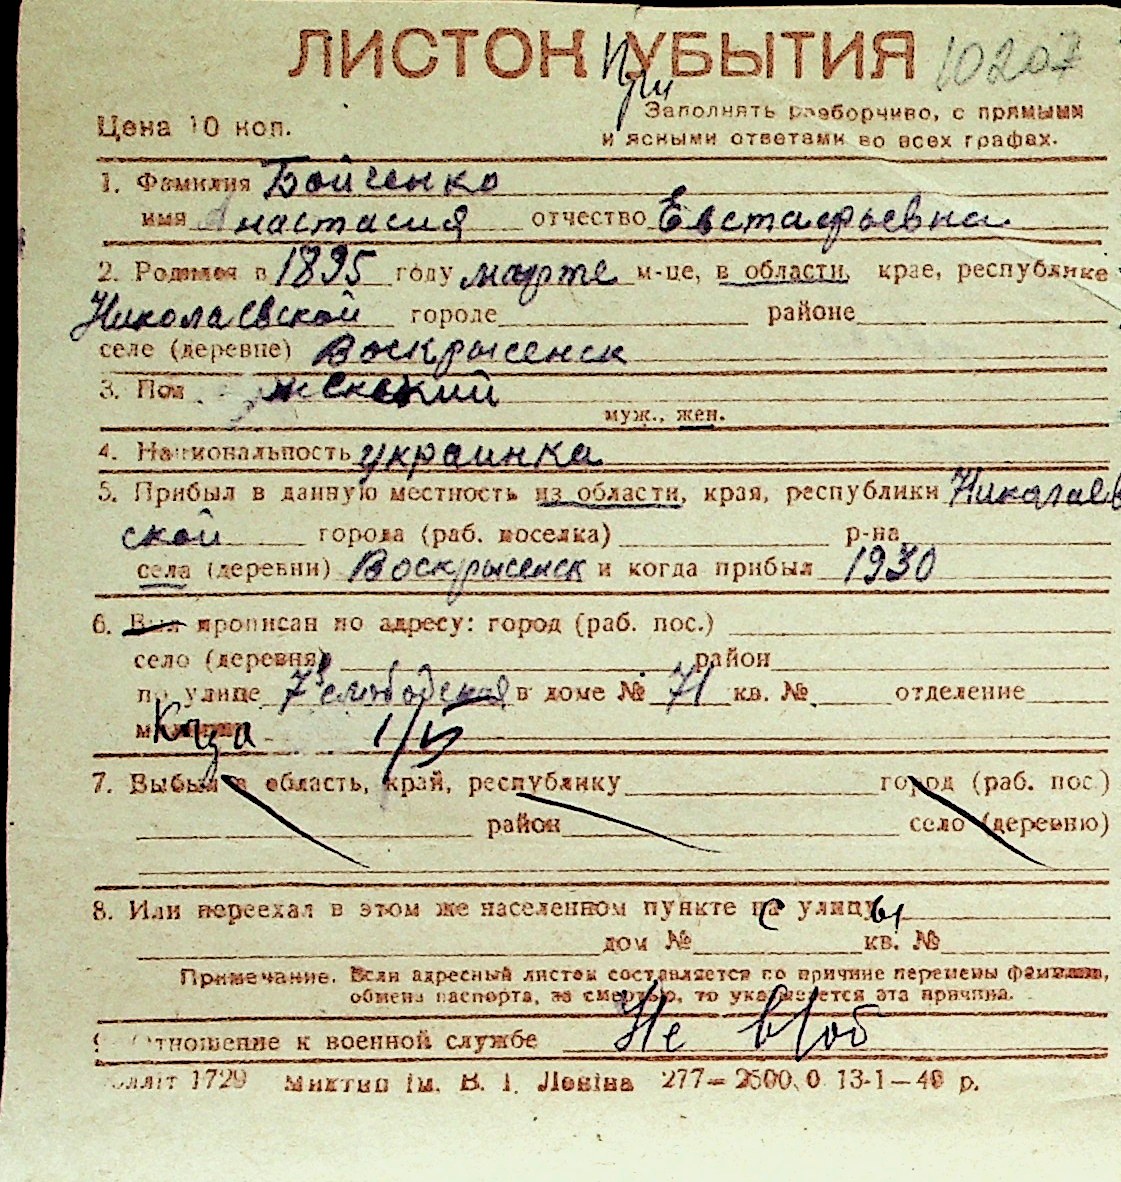 ЛИСТОК При УБЫТИЯ 10207
Цена 10 коп.
Заполнять разборчиво, с прямыми
и ясными ответами во всех графах.
1. Фамилия Бойченко
имя Анастасия отчество Евстафьевна
2. Родился в 1895 году марте м-це, в области, крае, республике
Николаевской городе районе
селе (деревне) Воскрысенск
3. Пол женский
муж., жен.
4. Национальность украинка
5. Прибыл в данную местность из области, края, республики Николаев
ской города (раб. поселка) р-на
села (деревни) Воскрысенск и когда прибыл 1930
6. Был прописан по адресу: город (раб. пос.)
село (деревня) район
по улице 7я слободская в доме № 71 кв. № отделение
7. Выбыл в область, край, республику город (раб. пос.)
район село (деревню)
8. Или переехал в этом же населенном пункте с улицы
дом № кв. №
Примечание. Если адресный листок составляется по причине перемены фамилии,
обмена паспорта, за смертью, то указывается эта причина.
9. Отношение к военной службе Не в/об
1729 Миктип ім. В. І. Леніна 277— 2500.0 13-1—49 р.